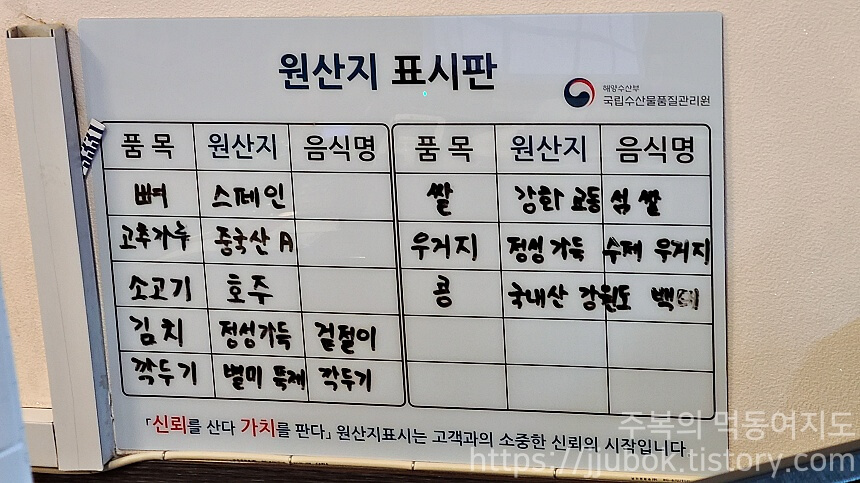 원산지 표시판
해양수산부
국립수산물품질관리원
품 목 원산지 음식명 품 목 원산지 음식명
뼈 스페인 쌀 강화 교동 섬 쌀
고추가루 중국산 A 우거지 정성가득 수제 우거지
소고기 호주 콩 국내산 강원도
김치 정성가득 겉절이
깍두기 별미 뚝제 깍두기
「신뢰를 산다 가치를 판다」 원산지표시는 고객과의 소중한 신뢰의 시작입니다
주복의 먹동여지도
https://jjubok.tistory.com